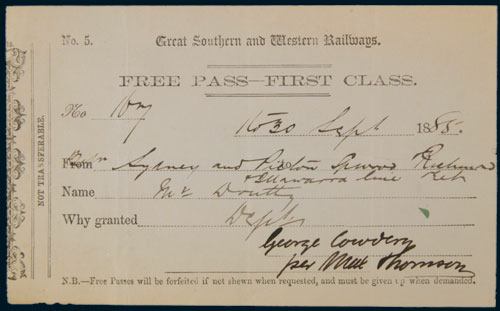 No. 5. Great Southern and Western Railways.
FREE PASS—FIRST CLASS.
No
to 30 Sept 1885.
From Sydney and Picton Richmond
Illawarra line
Name Mr
Why granted
George Cowdery
per Thomson
N.B.—Free Passes will be forfeited if not shewn when requested, and must be given up when demanded.
NOT TRANSFERABLE.